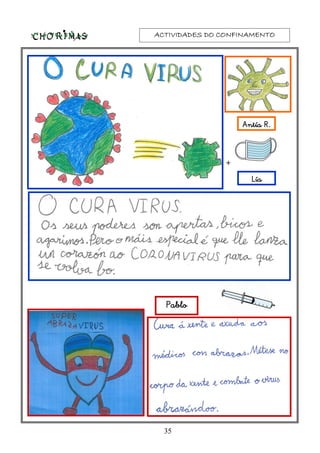 CHORIMAS
ACTIVIDADES DO CONFINAMENTO
O CURA VIRUS
Antía R.
+
Lía
O CURA VIRUS.
Os seus poderes son apertas, bicos e
agarimos. Pero o máis especial é que lle lanza
un corazón ao CORONAVIRUS para que
se volva bo.
Pablo
SUPER
ABRAZAVIRUS
Cura á xente e axuda aos
médicos con abrazos. Métese no
corpo da xente e combate o virus
abrazándoo.
35